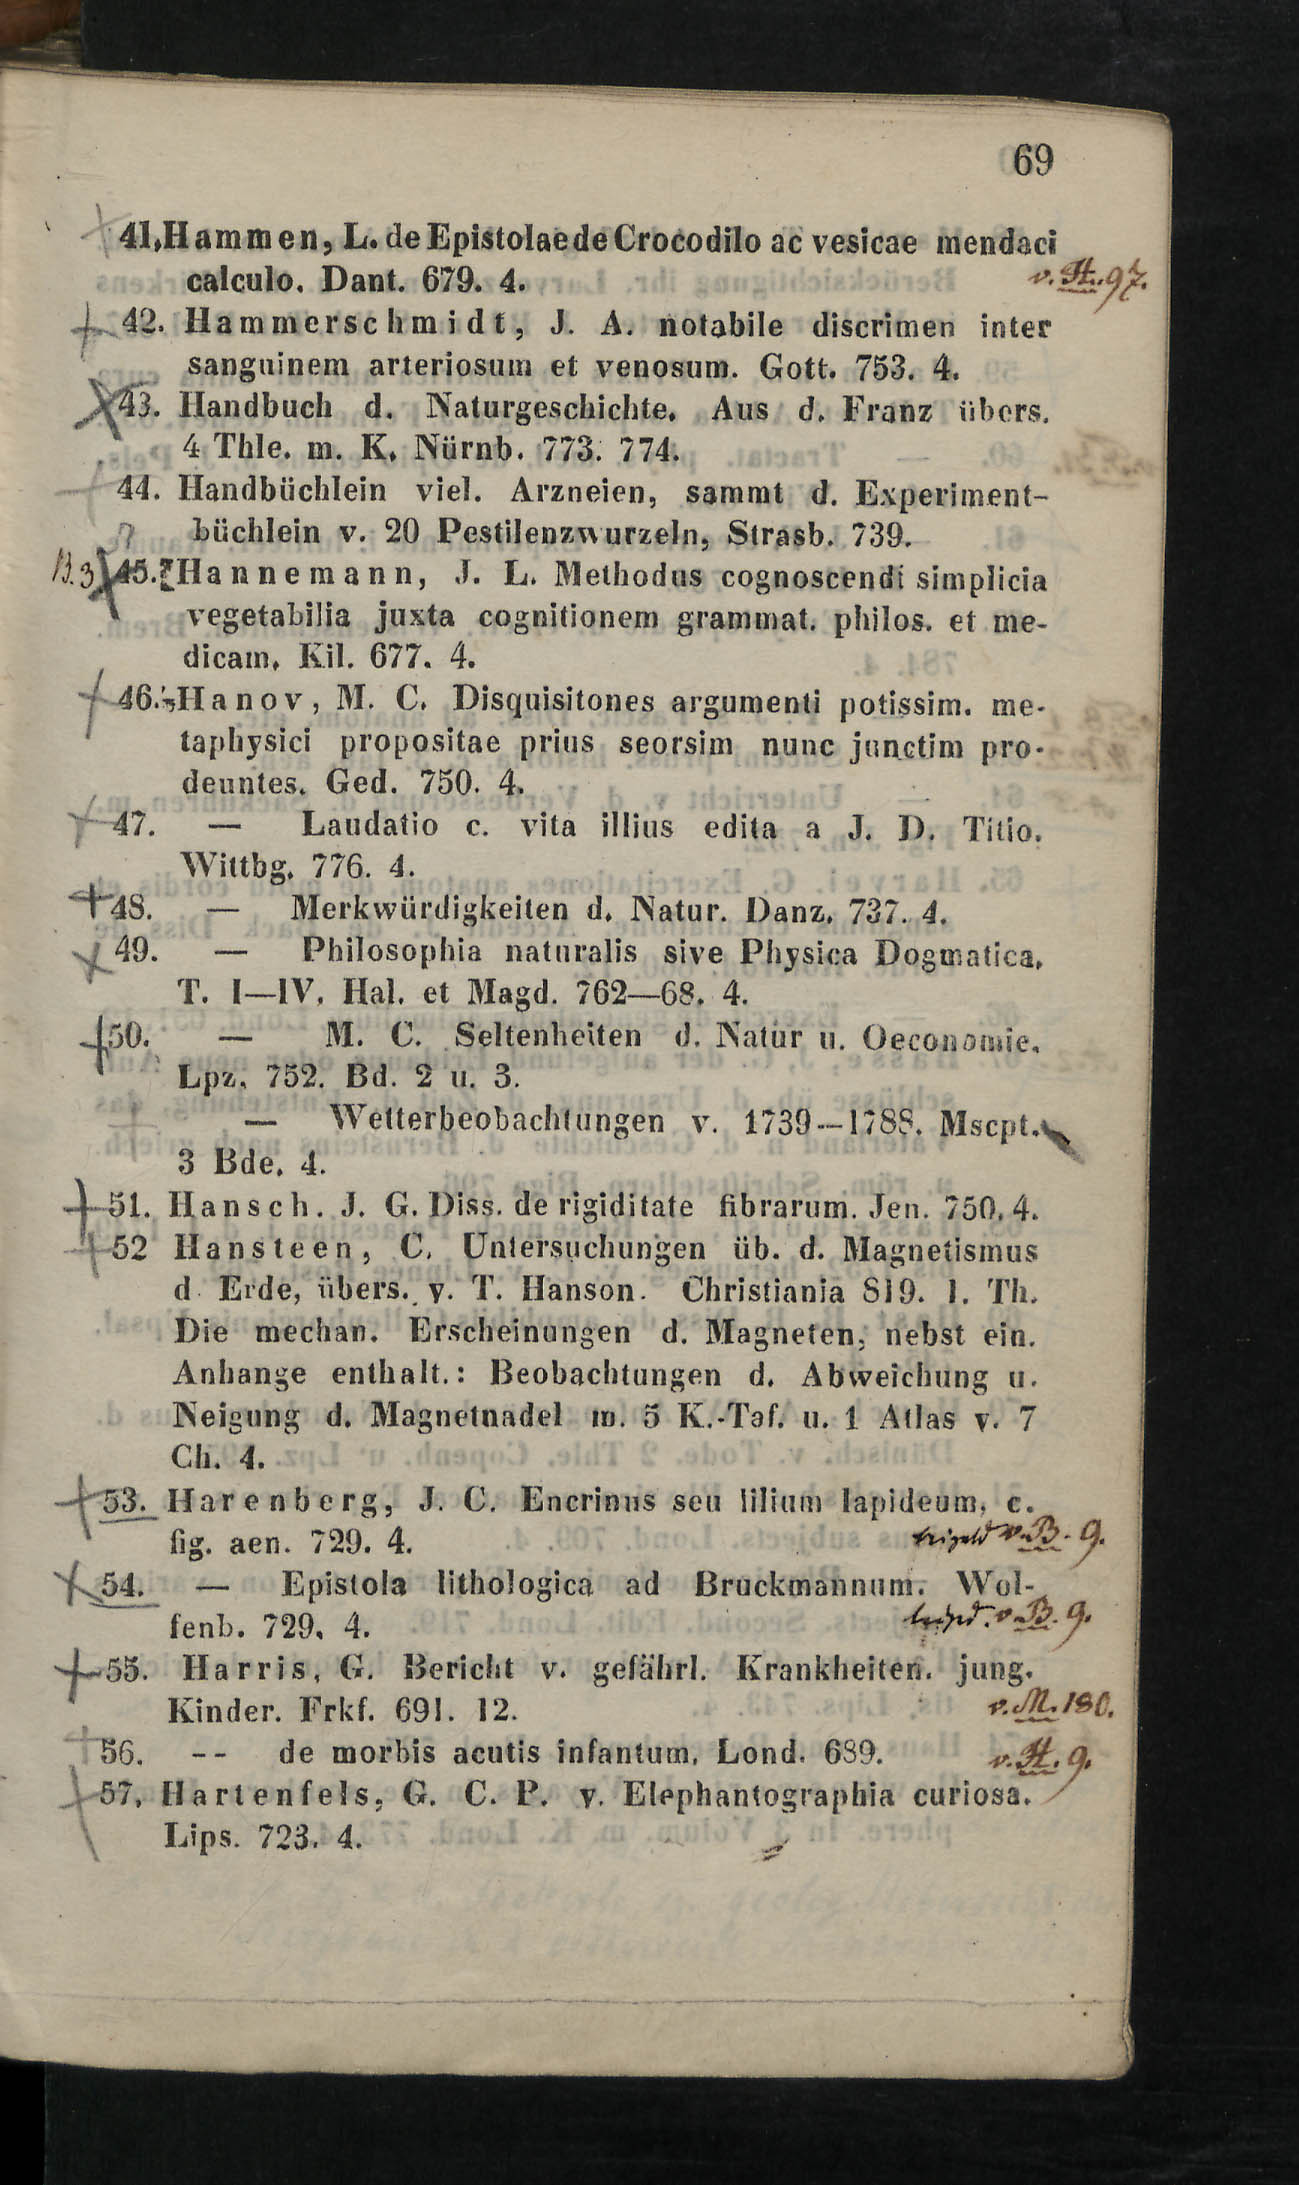 69
41, Hammen, L. de Epistolae de Crocodilo ac vesicae mendaci
calculo. Dant. 679. 4.
v. H. 97.
42. Hammerschmidt, J. A. notabile discrimen inter
sanguinem arteriosum et venosum. Gott. 753. 4.
43. Handbuch d. Naturgeschichte. Aus d. Franz übers.
4 Thle. m. K. Nürnb. 773. 774.
44. Handbüchlein viel. Arzneien, sammt d. Experiment-
büchlein v. 20 Pestilenzwurzeln, Strasb. 739.
B. 3 45. Hannemann, J. L. Methodus cognoscendi simplicia
vegetabilia juxta cognitionem grammat. philos. et me-
dicam. Kil. 677. 4.
46. Hanov, M. C. Disquisitones argumenti potissim. me-
taphysici propositae prius seorsim nunc junctim pro-
deuntes. Ged. 750. 4.
47. — Laudatio c. vita illius edita a J. D. Titio.
Wittbg. 776. 4.
48. — Merkwürdigkeiten d. Natur. Danz. 737. 4.
49. — Philosophia naturalis sive Physica Dogmatica.
T. I—IV. Hal. et Magd. 762—68. 4.
50. — M. C. Seltenheiten d. Natur u. Oeconomie.
Lpz. 752. Bd. 2 u. 3.
— Wetterbeobachtungen v. 1739—1788. Mscpt.
3 Bde. 4.
51. Hansch. J. G. Diss. de rigiditate fibrarum. Jen. 750. 4.
52 Hansteen, C. Untersuchungen üb. d. Magnetismus
d Erde, übers. v. T. Hanson. Christiania 819. 1. Th.
Die mechan. Erscheinungen d. Magneten, nebst ein.
Anhange enthalt.: Beobachtungen d. Abweichung u.
Neigung d. Magnetnadel m. 5 K.-Taf. u. 1 Atlas v. 7
Ch. 4.
53. Harenberg, J. C. Encrinus seu lilium lapideum, c.
fig. aen. 729. 4.
v. B. 9.
54. — Epistola lithologica ad Bruckmannum. Wol-
fenb. 729. 4.
v. B. 9.
55. Harris, G. Bericht v. gefährl. Krankheiten. jung.
Kinder. Frkf. 691. 12.
v. M. 180.
56. -- de morbis acutis infantum. Lond. 689.
v. H. 9.
57, Hartenfels, G. C. P. v. Elephantographia curiosa.
Lips. 723. 4.